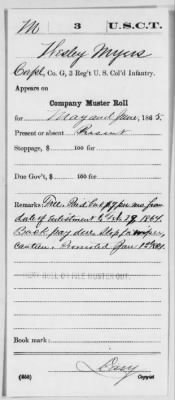 M | 3 | U.S.C.T.
Wesley Myers
Corpl, Co. G, 3 Reg't U. S. Col'd Infantry.
Appears on
Company Muster Roll
for May and June, 1865.
Present or absent Present
Stoppage, $ 100 for
Due Gov't, $ 100 for
Remarks Free. Paid
date of enlistment to Feb 29 1864.
Back pay due. Stop for wiper,
canteen. Promoted Jan
Book mark:
(858) Copyist